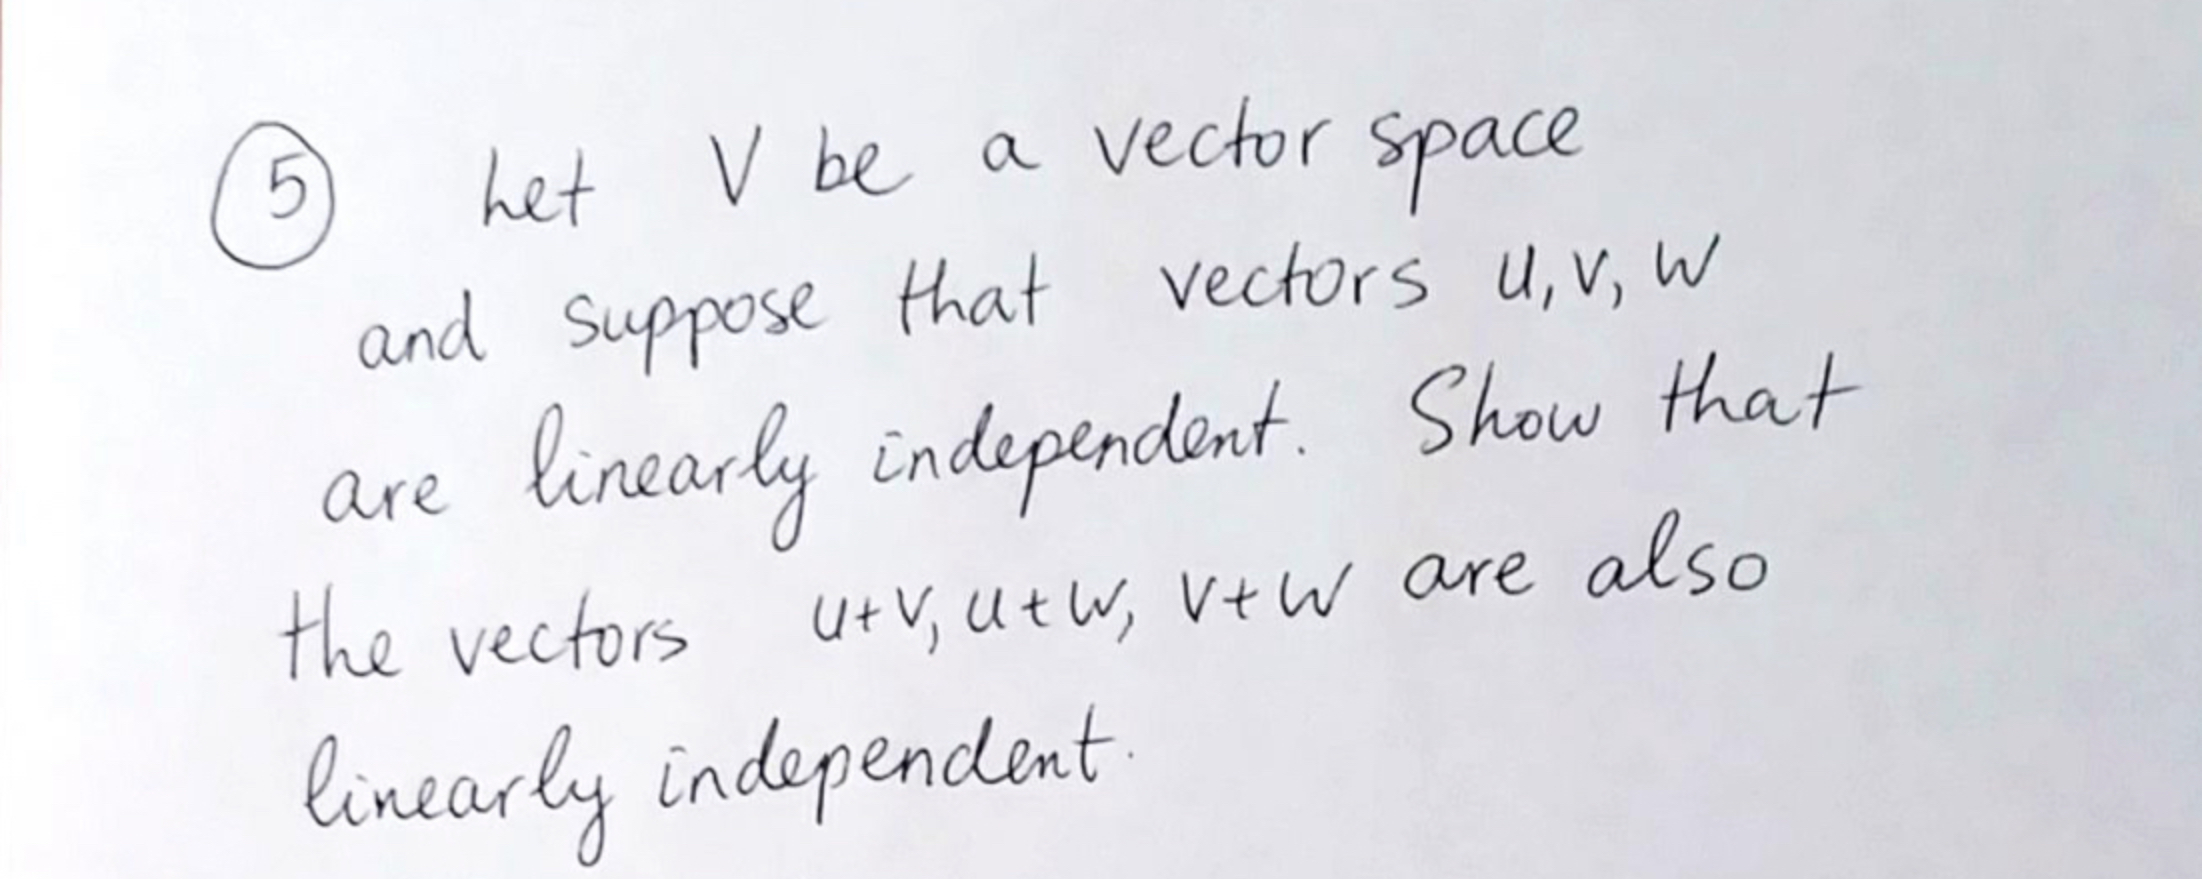 5 Let V be a vector space
and suppose that vectors u, v, w
are linearly independent. Show that
the vectors u+v, u+w, v+w are also
linearly independent.